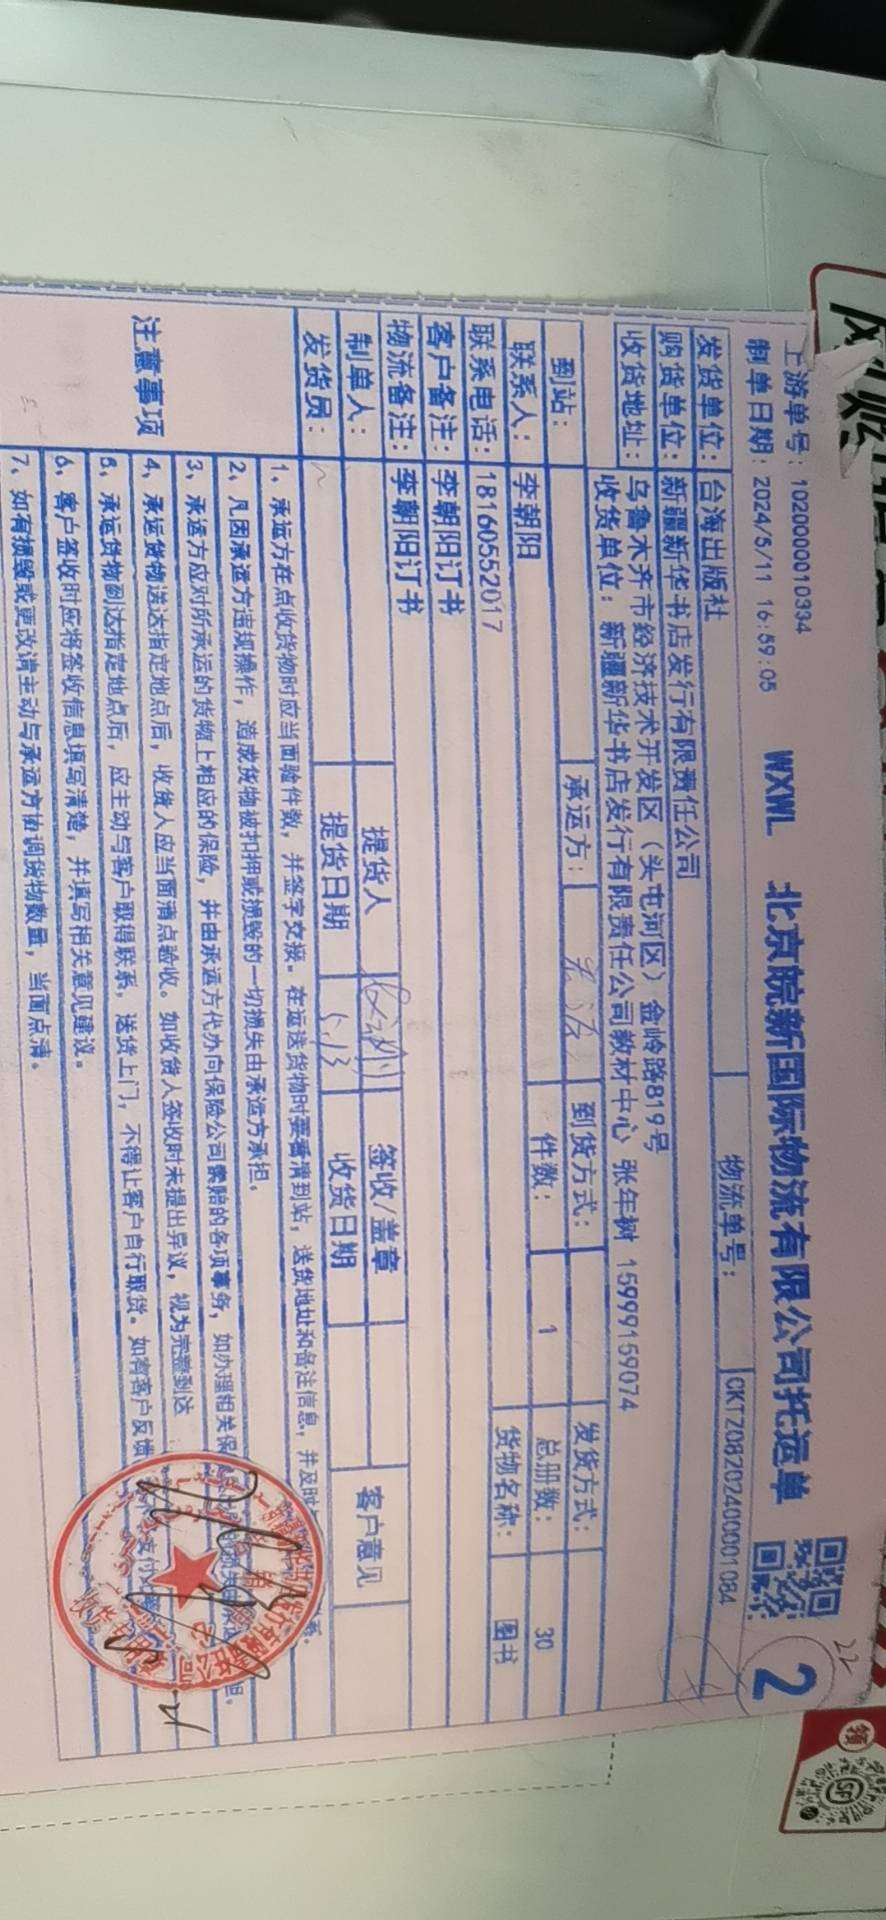 上游单号：1020000010334
制单日期：2024/5/11 16:59:05
WXWL 北京皖新国际物流有限公司托运单
2
22
物流单号：CKTZ0820240001084
发货单位：台海出版社
购货单位：新疆新华书店发行有限责任公司
收货地址：乌鲁木齐市经济技术开发区（头屯河区）金岭路819号
收货单位：新疆新华书店发行有限责任公司教材中心 张年树 15999159074
到站： 承运方： 到货方式： 发货方式：
联系人：李朝阳 件数：1 总册数：30
联系电话：18160552017 货物名称：图书
客户备注：李朝阳订书
物流备注：李朝阳订书
制单人： 提货人 签收/盖章 客户意见
发货员： 提货日期 5.13 收货日期
注意事项
1、承运方在点收货物时应当面验件数，并签字交接。在运送货物时要看清到站，送货地址和备注信息，并及时
2、凡因承运方违规操作，造成货物被扣押或损毁的一切损失由承运方承担。
3、承运方应对所承运的货物上相应的保险，并由承运方代办向保险公司索赔的各项事务，如办理相关保
4、承运货物送达指定地点后，收货人应当面清点验收。如收货人签收时未提出异议，视为完整到达
5、承运货物到达指定地点后，应主动与客户取得联系，送货上门，不得让客户自行取货。如有客户反馈
6、客户签收时应将签收信息填写清楚，并填写相关意见建议。
7、如有损毁或更改请主动与承运方协调货物数量，当面点清。
领
SF